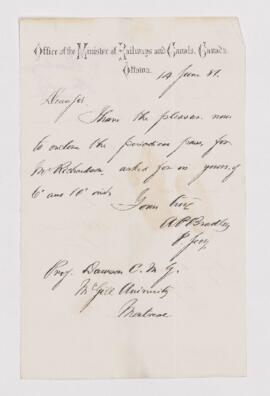 Office of the Minister of Railways and Canals, Canada.
Ottawa.
14 June 81.
Dear Sir
I have the pleasure now
to enclose the periodical pass for
Mr Richardson asked for in yours of
6th and 10th inst.
Yours truly
A P Bradley
P. Secy
Prof. Dawson C. M. G.
McGill University
Montreal